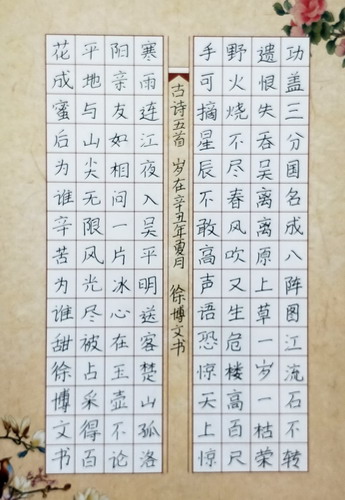 功盖三分国名成八阵图江流石不转
遗恨失吞吴离离原上草一岁一枯荣
野火烧不尽春风吹又生危楼高百尺
手可摘星辰不敢高声语恐惊天上惊
古诗五首 岁在辛丑年夏月 徐博文书
寒雨连江夜入吴平明送客楚山孤洛
阳亲友如相问一片冰心在玉壶不论
平地与山尖无限风光尽被占采得百
花成蜜后为谁辛苦为谁甜徐博文书